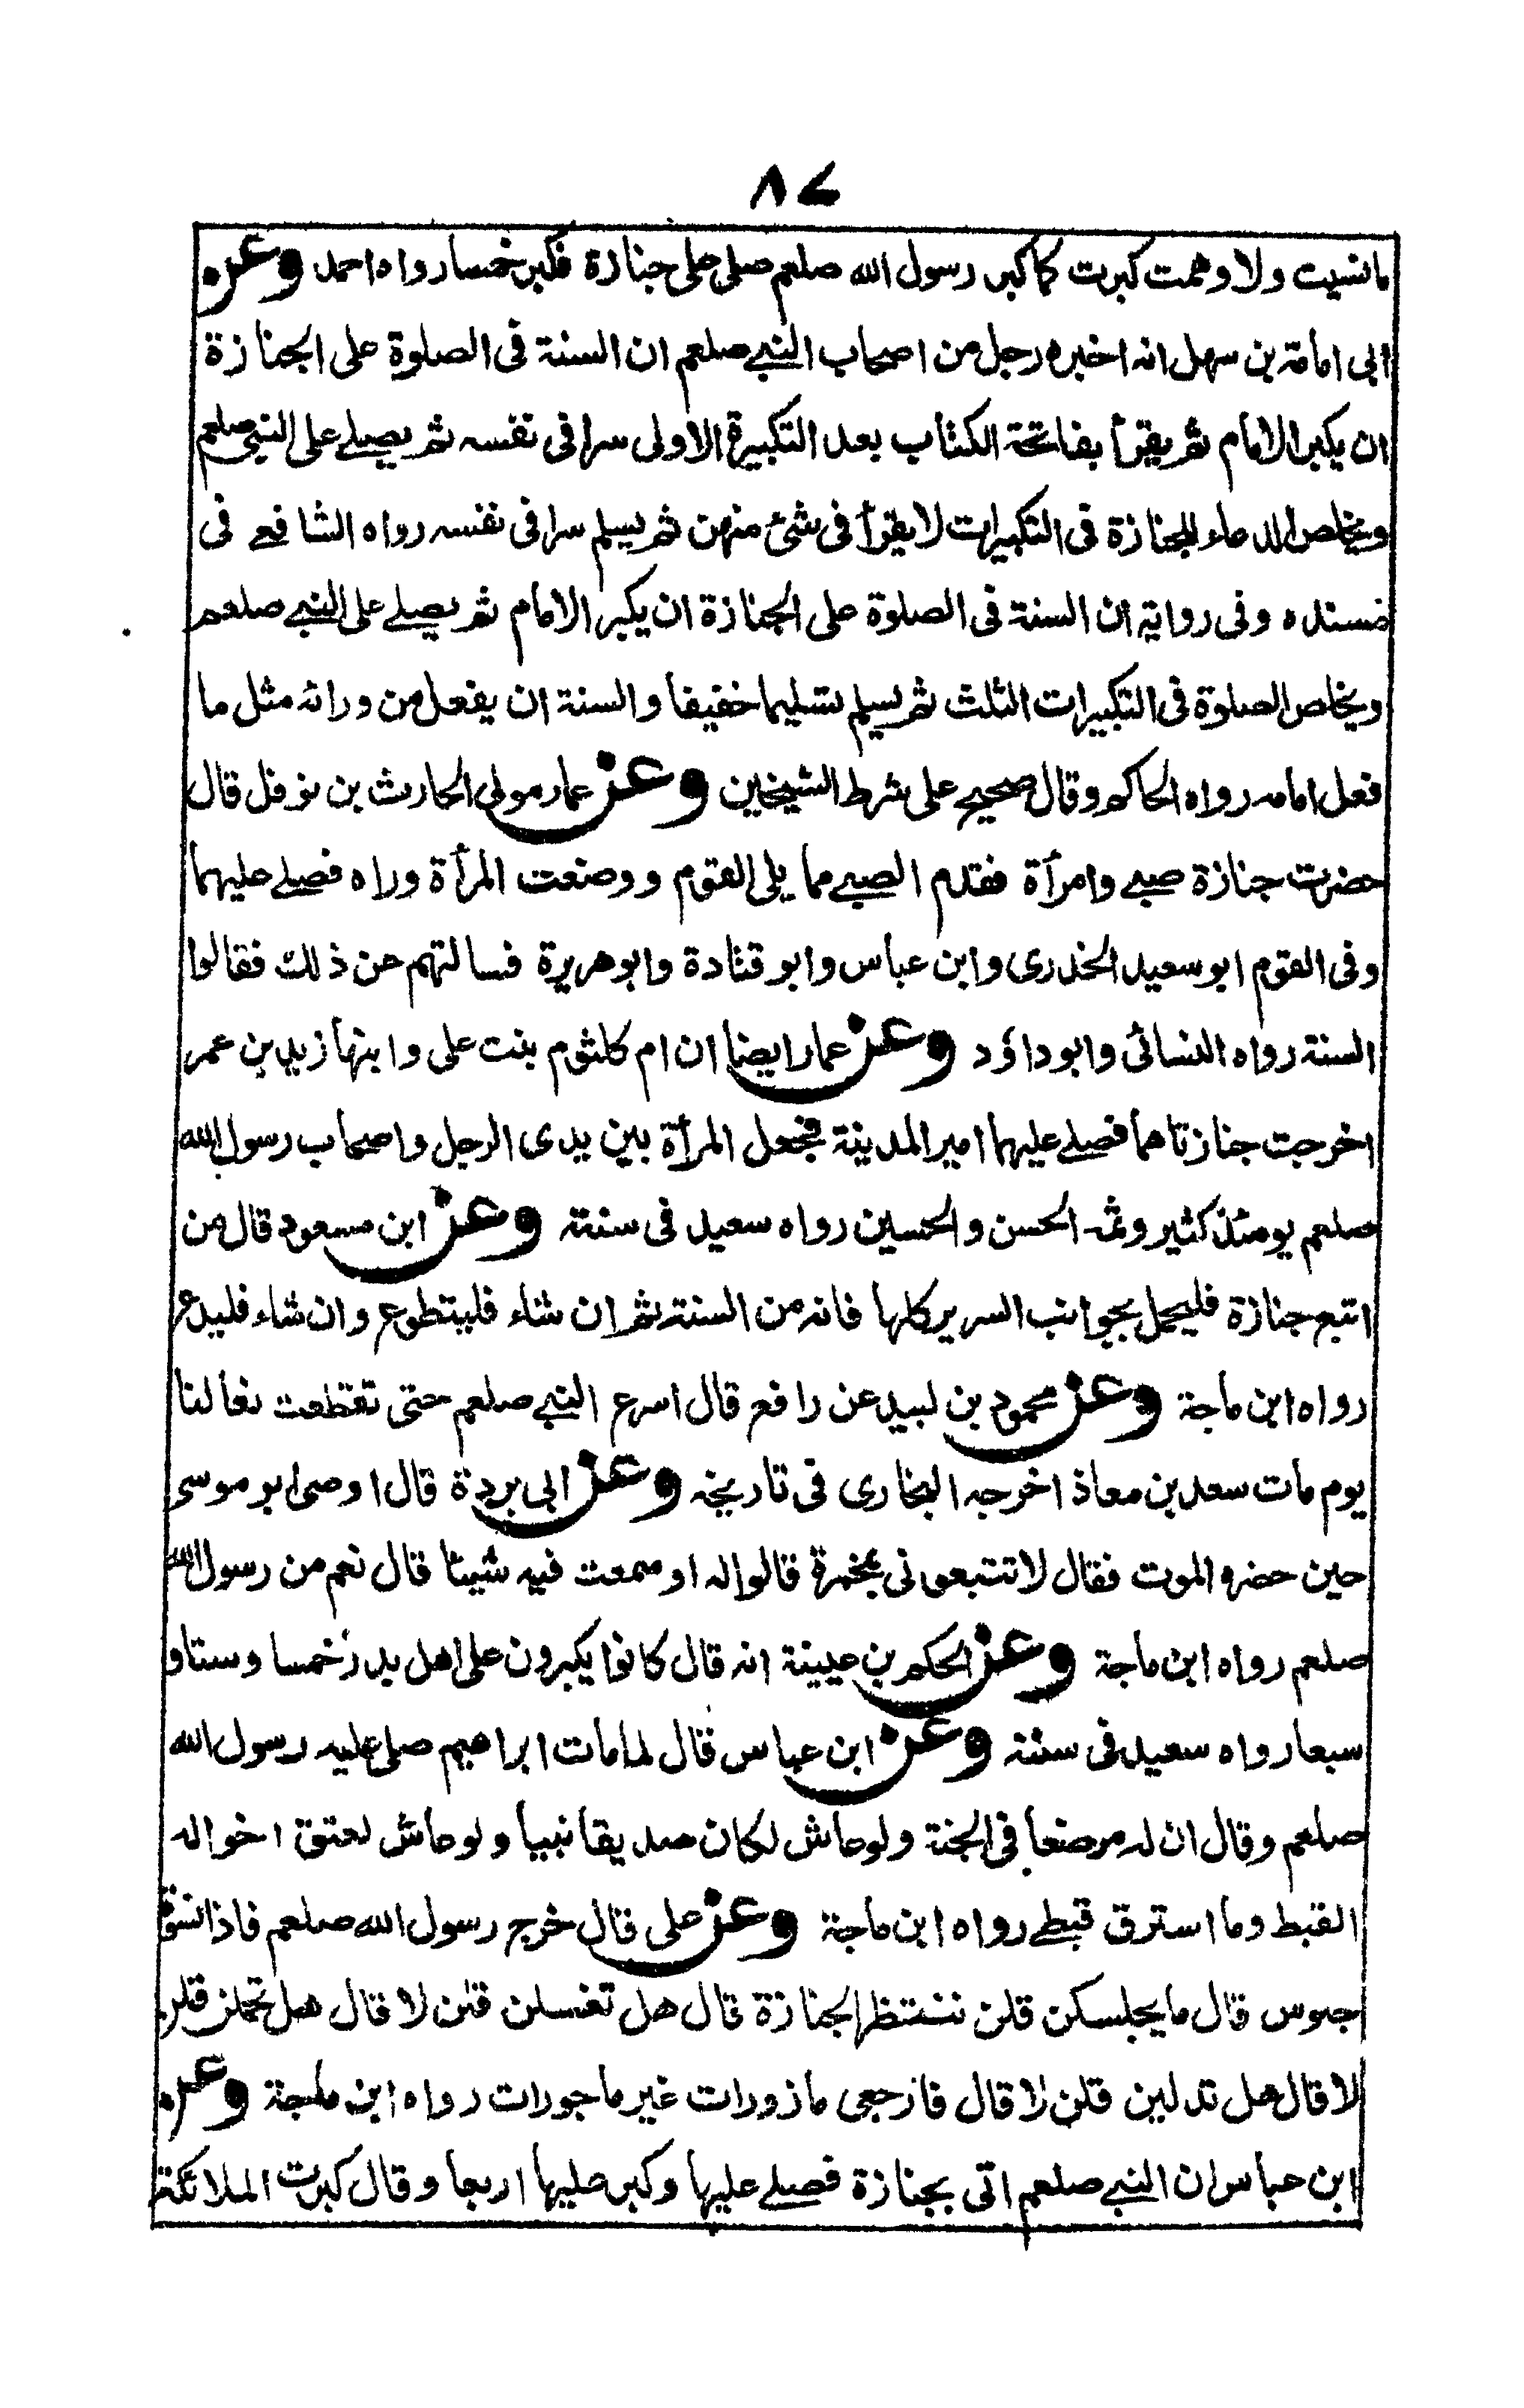 ٨٧
ما نسيت ولا وهمت كبرت كما كبر رسول الله صلعم صلى على جنازة فكبر خمسا رواه احمد وعن
ابى امامة بن سهل انه اخبره رجل من اصحاب النبى صلعم ان السنة فى الصلوة على الجنازة
ان يكبر الامام ثم يقرأ بفاتحة الكتاب بعد التكبيرة الاولى سرا فى نفسه ثم يصلى على النبى صلعم
ويخلص الدعاء للجنازة فى التكبيرات لا يقرأ فى شئ منهن ثم يسلم سرا فى نفسه رواه الشافعى فى
مسنده وفى رواية ان السنة فى الصلوة على الجنازة ان يكبر الامام ثم يصلى على النبى صلعم
ويخلص الصلوة فى التكبيرات الثلث ثم يسلم تسليما خفيفا والسنة ان يفعل من ورائه مثل ما
فعل امامه رواه الحاكم وقال صحيح على شرط الشيخين وعن عمار مولى الحارث بن نوفل قال
حضرت جنازة صبى وامرأة فقدم الصبى مما يلى القوم ووضعت المرأة وراه فصلى عليهما
وفى القوم ابو سعيد الخدرى وابن عباس وابو قتادة وابو هريرة فسالتهم عن ذلك فقالوا
السنة رواه النسائى وابو داؤد وعن عمار ايضا ان ام كلثوم بنت على وابنها زيد بن عمر
اخرجت جنازتاهما فصلى عليهما امير المدينة فجعل المرأة بين يدى الرجل واصحاب رسول الله
صلعم يومئذ كثير وثمه الحسن والحسين رواه سعيد فى سننه وعن ابن مسعود قال من
اتبع جنازة فليحمل بجوانب السرير كلها فانه من السنة ثم ان شاء فليتطوع وان شاء فليدع
رواه ابن ماجة وعن محمود بن لبيد عن رافع قال اسرع النبى صلعم حتى تقطعت نعالنا
يوم مات سعد بن معاذ اخرجه البخارى فى تاريخه وعن ابى بردة قال اوصى ابو موسى
حين حضره الموت فقال لا تتبعونى بمجمرة قالوا له او سمعت فيه شيئا قال نعم من رسول الله
صلعم رواه ابن ماجة وعن الحكم بن عيينة انه قال كانوا يكبرون على اهل بدر خمسا وستا و
سبعا رواه سعيد فى سننه وعن ابن عباس قال لما مات ابراهيم صلى عليه رسول الله
صلعم وقال ان له مرضعا فى الجنة ولو عاش لكان صديقا نبيا ولو عاش لعتق اخواله
القبط وما استرق قبطى رواه ابن ماجة وعن على قال خرج رسول الله صلعم فاذا نسوة
جلوس قال ما يجلسكن قلن ننتظر الجنازة قال هل تغسلن قلن لا قال هل تحملن قلن
لا قال هل تدلين قلن لا قال فارجعى مازورات غير ماجورات رواه ابن ماجة وعن
ابن عباس ان النبى صلعم اتى بجنازة فصلى عليها وكبر عليها اربعا وقال كبرت الملائكة